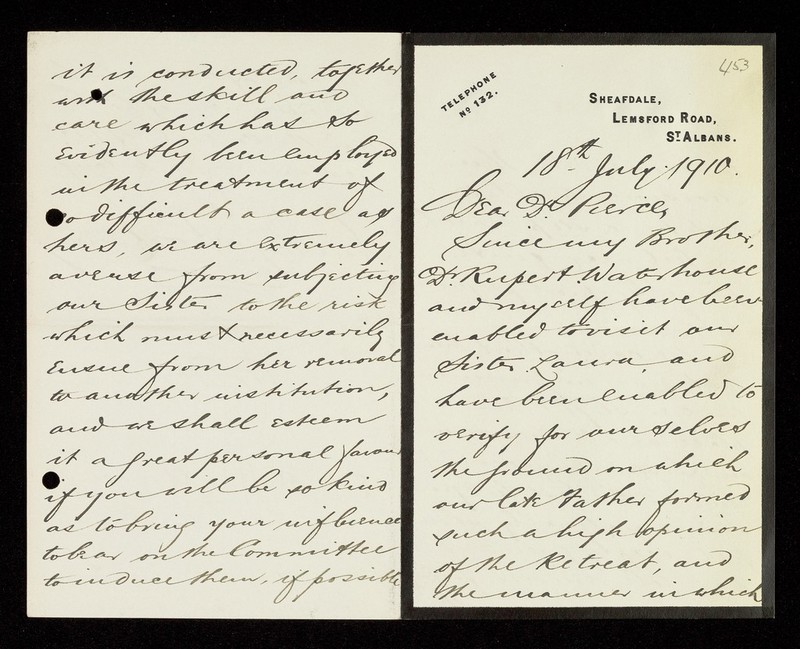 453
TELEPHONE
No 132.
SHEAFDALE,
LEMSFORD ROAD,
ST ALBANS.
18th July. 1910.
Dear Dr Pierce,
Since my Brother,
Dr. Rupert Waterhouse
and myself have been
enabled to visit our
Sister Laura, and
have been enabled to
verify for ourselves
the ground on which
our late Father formed
such a high opinion
of the Retreat, and
the manner in which
it is conducted, together
with the skill and
care which has so
evidently been employed
in the treatment of
so difficult a case as
hers, we are extremely
averse from subjecting
our Sister to the risk
which must necessarily
ensue from her removal
to another institution,
and we shall esteem
it a great personal favour
if you will be so kind
as to bring your influence
to bear on the Committee
to induce them, if possible